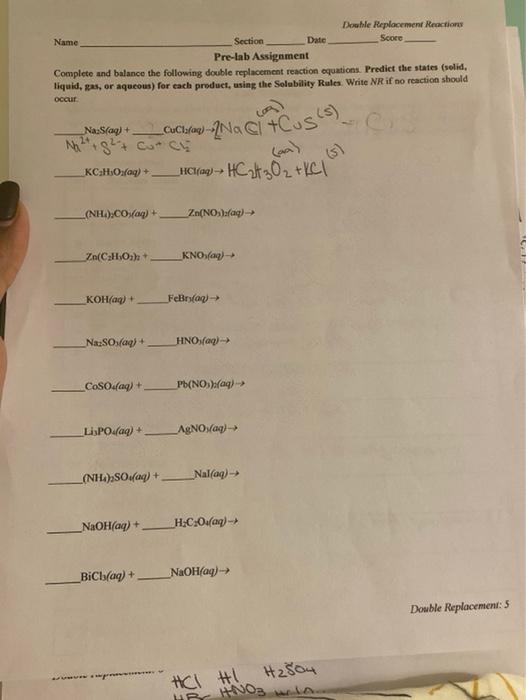 Double Replacement Reactions
Name Section Date Score
Pre-lab Assignment
Complete and balance the following double replacement reaction equations. Predict the states (solid,
liquid, gas, or aqueous) for each product, using the Solubility Rules. Write NR if no reaction should
occur.
(aq) (s)
___Na₂S(aq) + ___CuCl₂(aq) → 2NaCl + CuS
Na²⁺ + S²⁻ + Cu
(aq) (s)
___KC₂H₃O₂(aq) + ___HCl(aq) → HC₂H₃O₂ + KCl
___(NH₄)₂CO₃(aq) + ___Zn(NO₃)₂(aq) →
___Zn(C₂H₃O₂)₂ + ___KNO₃(aq) →
___KOH(aq) + ___FeBr₃(aq) →
___Na₂SO₃(aq) + ___HNO₃(aq) →
___CoSO₄(aq) + ___Pb(NO₃)₂(aq) →
___Li₃PO₄(aq) + ___AgNO₃(aq) →
___(NH₄)₂SO₄(aq) + ___NaI(aq) →
___NaOH(aq) + ___H₂C₂O₄(aq) →
___BiCl₃(aq) + ___NaOH(aq) →
Double Replacement: 5
HCl HI H₂SO₄
HNO₃